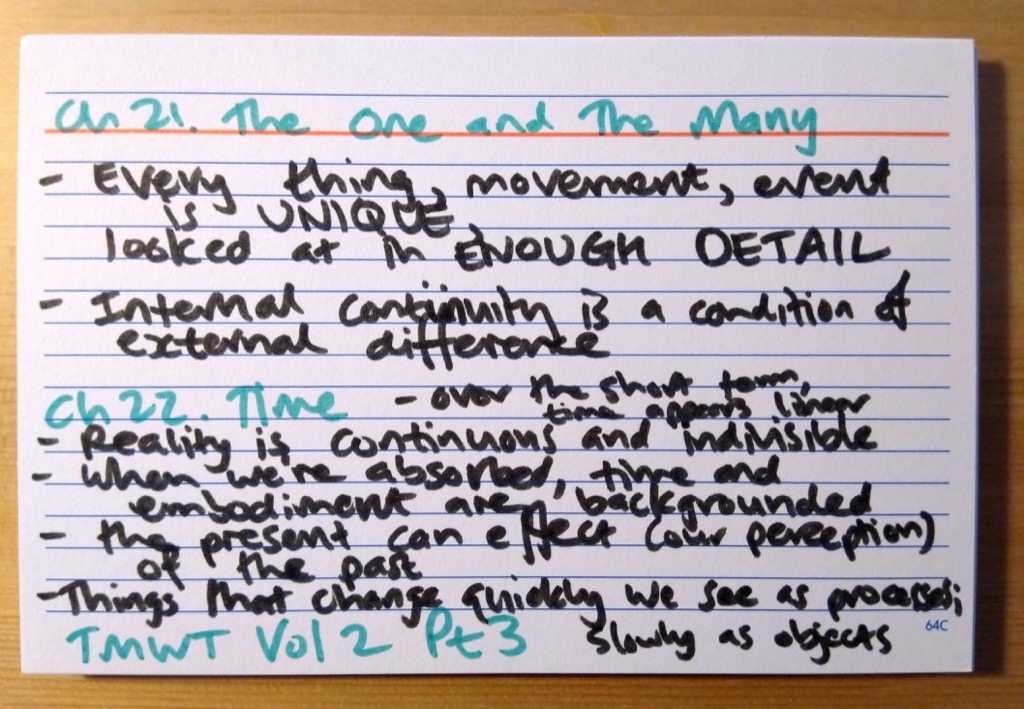 Ch 21. The One and The Many
- Every thing, movement, event
is UNIQUE,
looked at in ENOUGH DETAIL
- Internal continuity is a condition of
external difference
Ch 22. Time - over the short term,
time appears linear
- Reality is continuous and indivisible
- When we're absorbed, time and
embodiment are backgrounded
- the present can effect (our perception)
of the past
- Things that change quickly we see as processes;
slowly as objects
TMWT Vol 2 Pt 3
64C